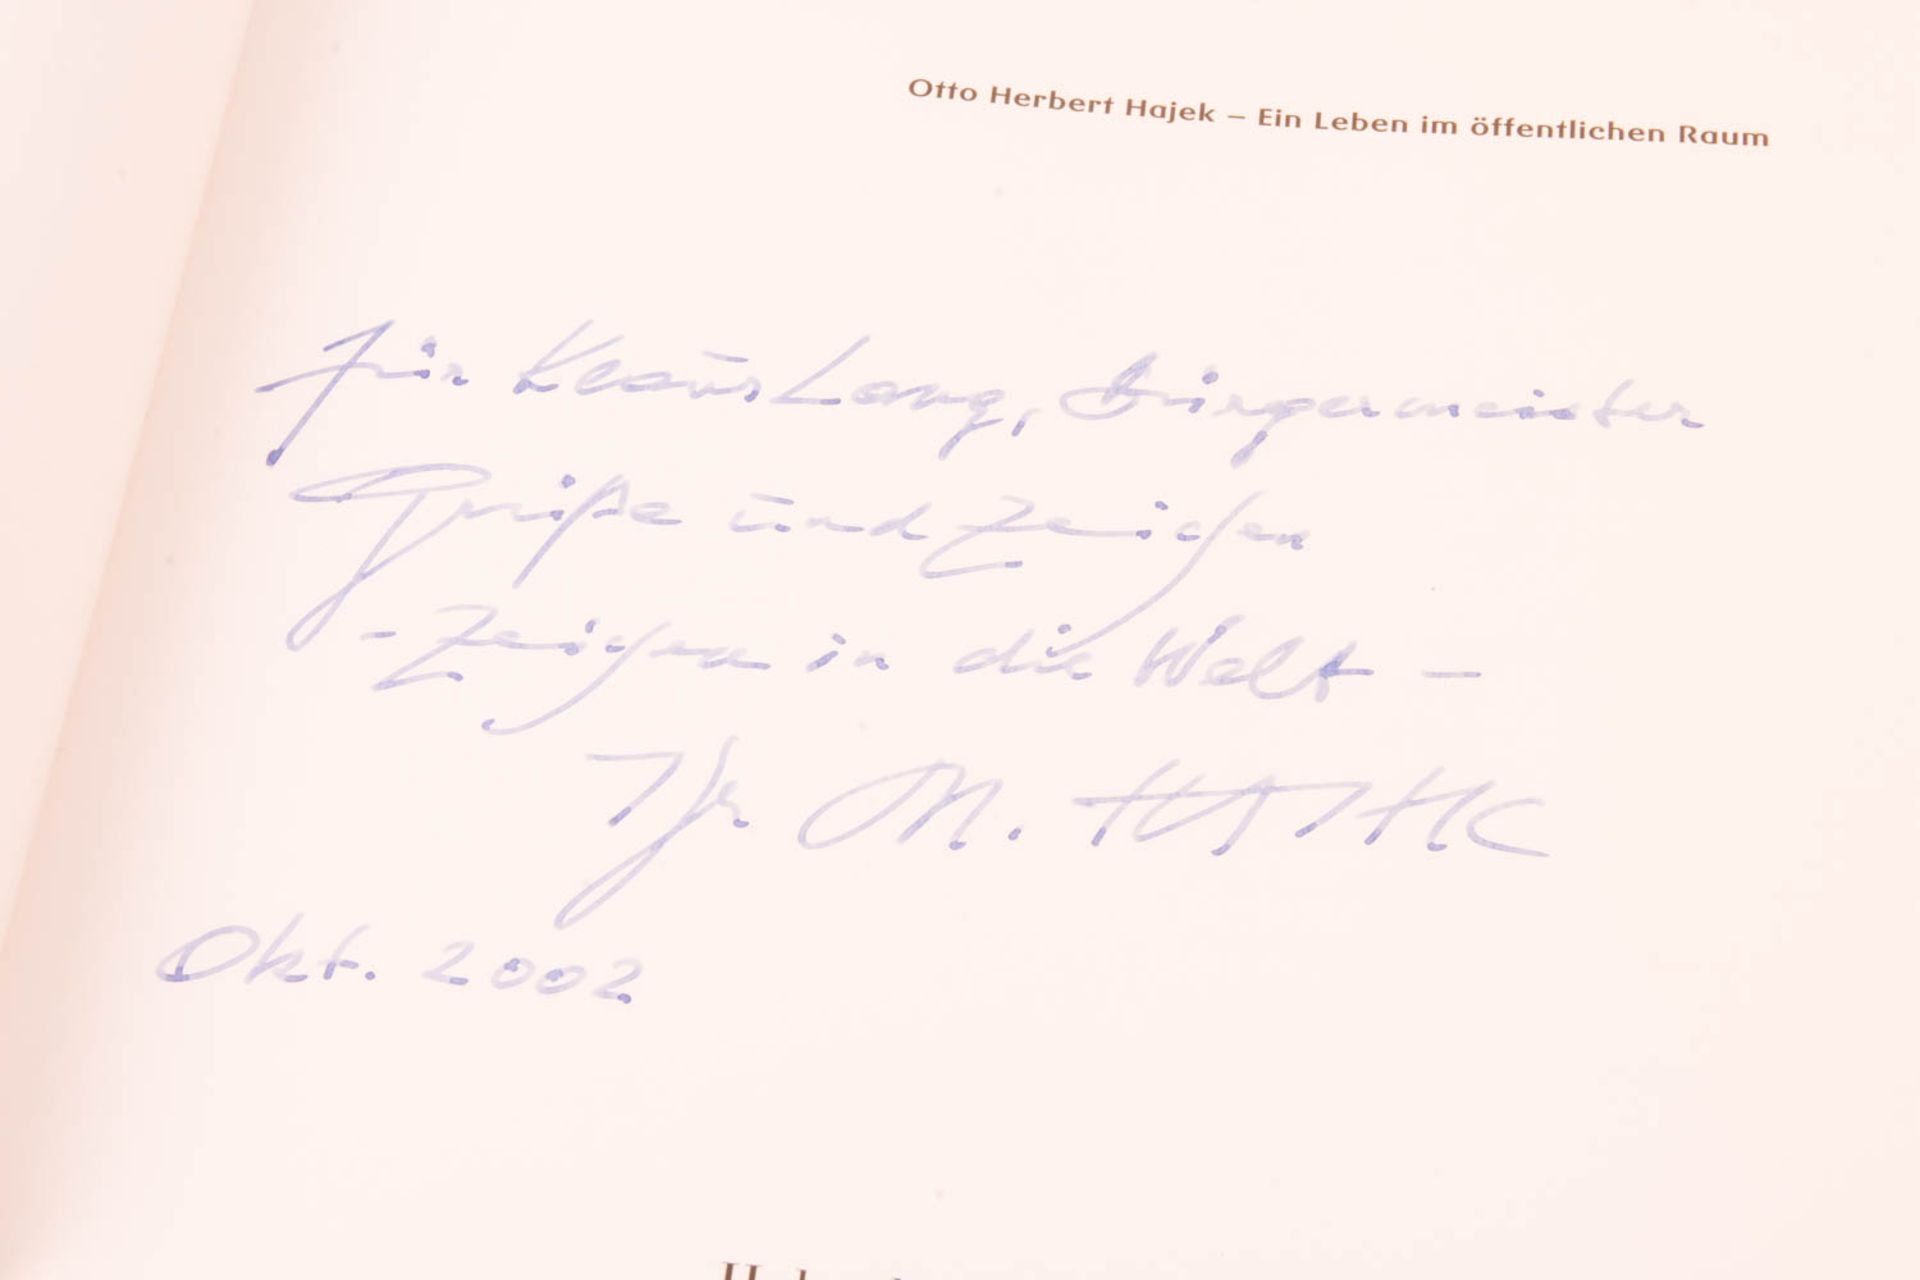 Otto Herbert Hajek – Ein Leben im öffentlichen Raum
für Klaus Lang, Bürgermeister
Grüße und Zeichen
- Zeichen in die Welt -
Ihr HAJEK
Okt. 2002